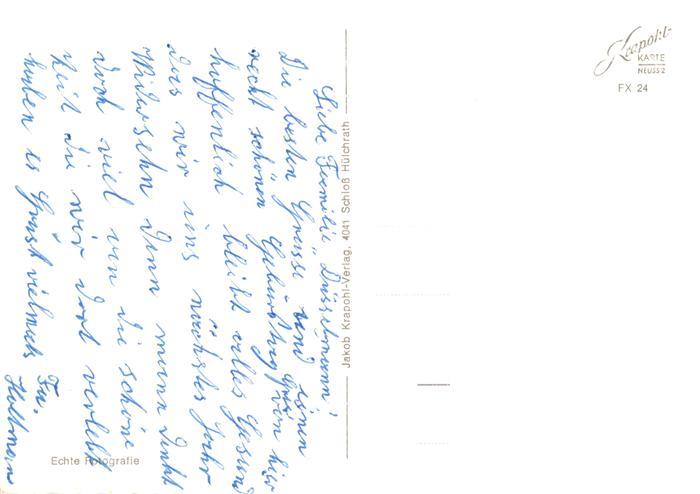 Liebe Familie „Düsselmann"!
Die besten Grüsse und einen
recht schönen Geburtstag von hier
hoffenlich bleibt alles Gesund
das wir uns nächstes Jahr
Widersehn denn mann denkt
doch viel an die schöne
Zeit die wir dort verlebt
haben es Grüst vielmals
Fa. Holtmann
Jakob Krapohl-Verlag, 4041 Schloß Hülchrath
Echte Fotografie
Krapohl-
KARTE
NEUSS 2
FX 24